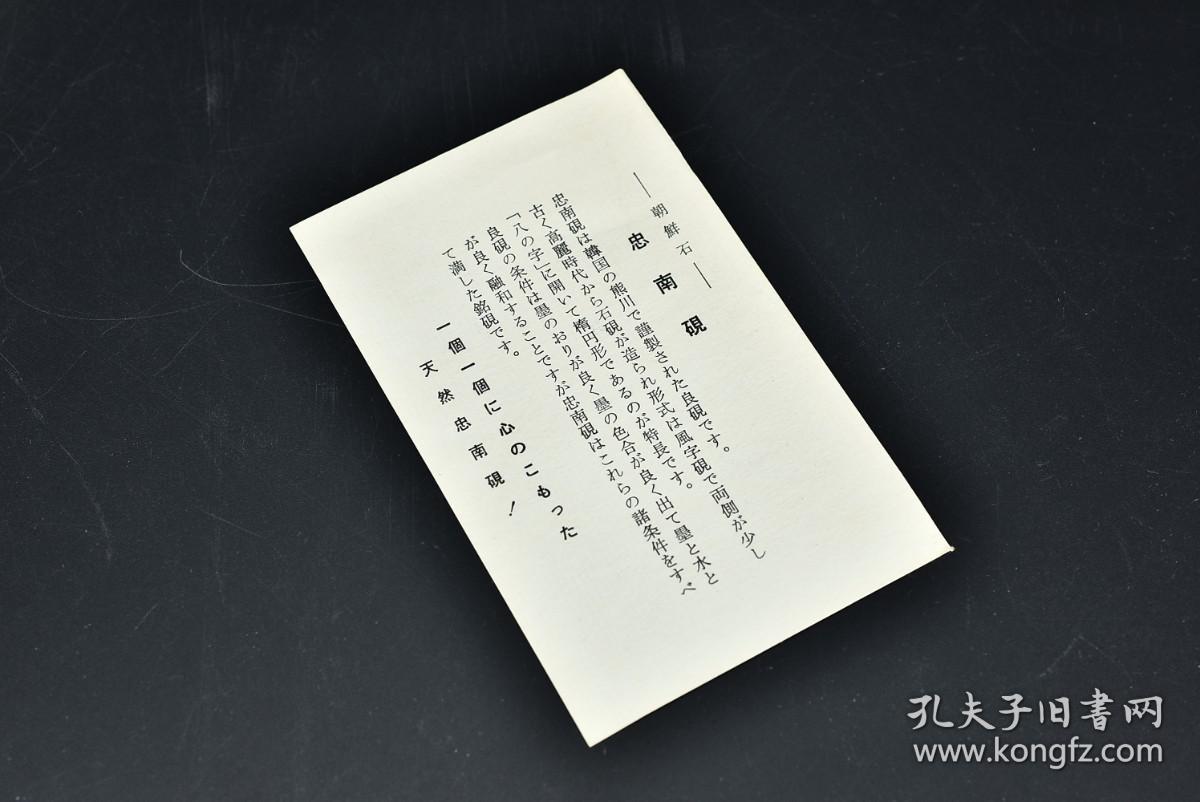 ―朝鮮石―
忠南硯
忠南硯は韓国の熊川で謹製された良硯です。
古く高麗時代から石硯が造られ形式は風字硯で両側が少し
「八の字」に開いて楕円形であるのが特長です。
良硯の条件は墨のおりが良く墨の色合が良く出て墨と水と
が良く融和することですが忠南硯はこれらの諸条件をすべ
て満した銘硯です。
一個一個に心のこもった
天然忠南硯！
孔夫子旧書网
www.kongfz.com